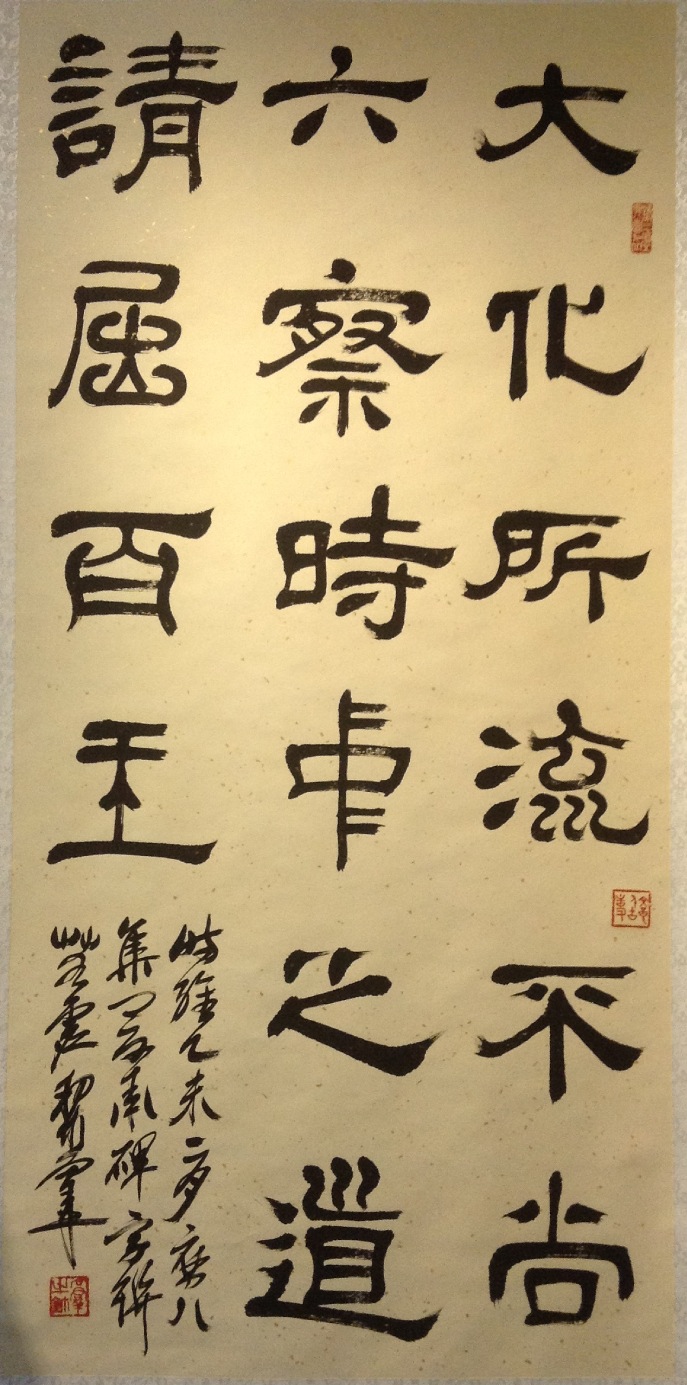 大化所流不尚
六察時中之道
請屈百王
時維乙未
集碑字聯